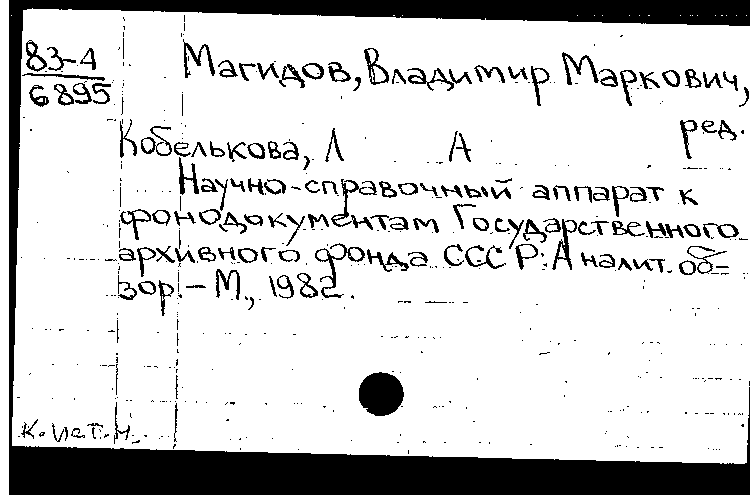 83-4
6895
Магидов, Владимир Маркович,
ред.
Кобелькова, Л А
Научно-справочный аппарат к
фонодокументам Государственного
архивного фонда СССР: Аналит. об-
зор. – М., 1982.
К. ист. н.